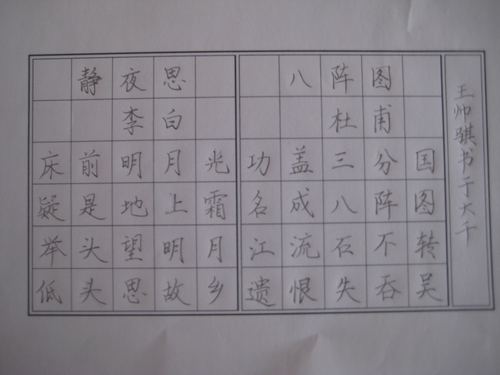 静夜思
李白
床前明月光
疑是地上霜
举头望明月
低头思故乡
八阵图
杜甫
功盖三分国
名成八阵图
江流石不转
遗恨失吞吴
王帅骐书于大千